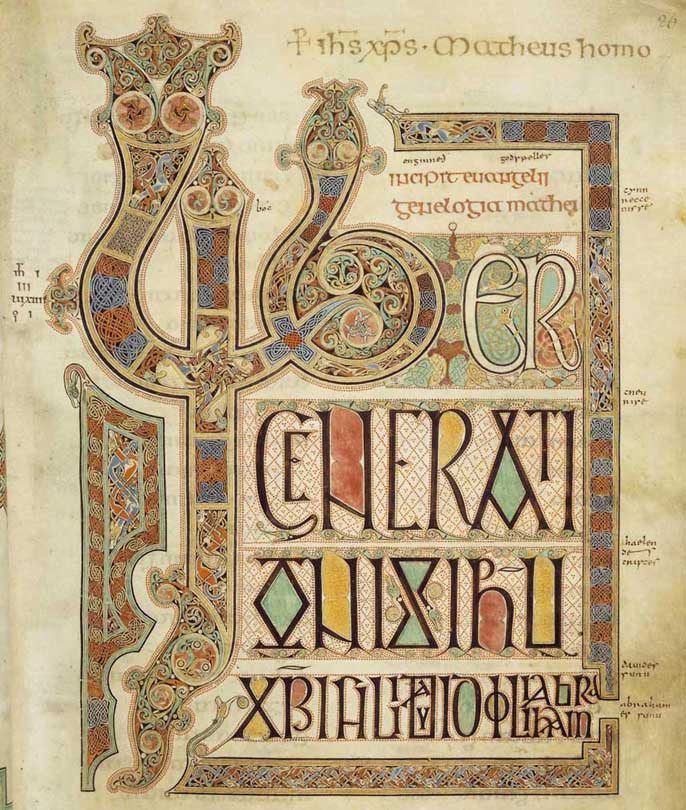 26
+ ih̅s xp̅s · Matheus homo
onginneð godspelles
incipit euangelii
genelogia mathei
boc
LIBER
GENERATI
ONIS IH̅U
XP̅I FILII DAVID FILII ABRA
HAM
haelen
des
cristes
dauides
sunu
abraham
es sunu